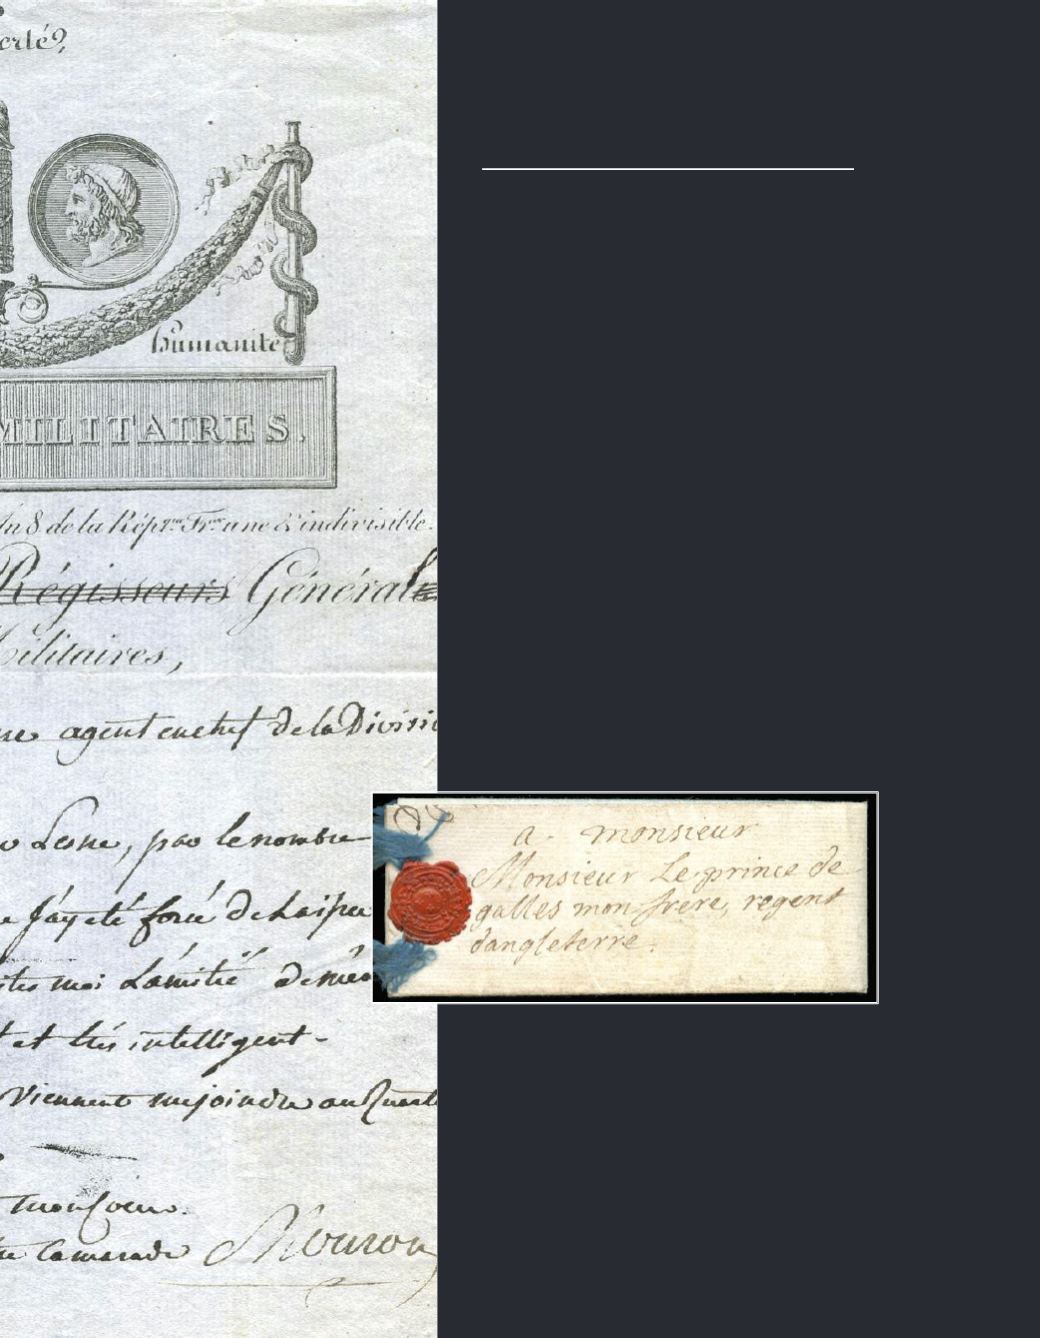 erté,
humanité
MILITAIRES.
8 de la Rép. Fr. une & indivisible.
Régisseurs Général
ilitaires,
agent en chef de la Divisi
par le nombre
j'ay eté forcé de
moi L'amitié de
et trés intelligent-
Viennent me joindre au Quart
mon coeur.
Camarade
a monsieur
Monsieur Le prince de
galles mon frere, regent
dangleterre.